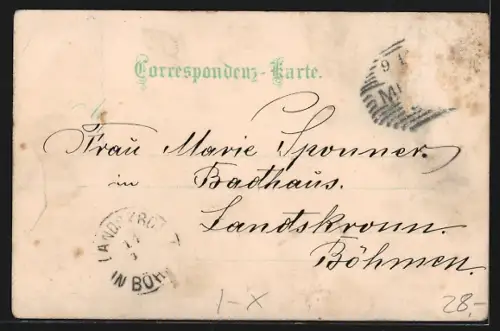 Correspondenz-Karte.
9
Frau Marie Sponner.
im Badhaus.
Landskronn.
Böhmen.
LANDSKRO
IN BÖH
1-X
28,-